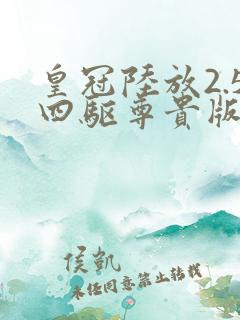 皇冠陸放2.5
四驅尊貴版
侯凱
未任同意禁止转载